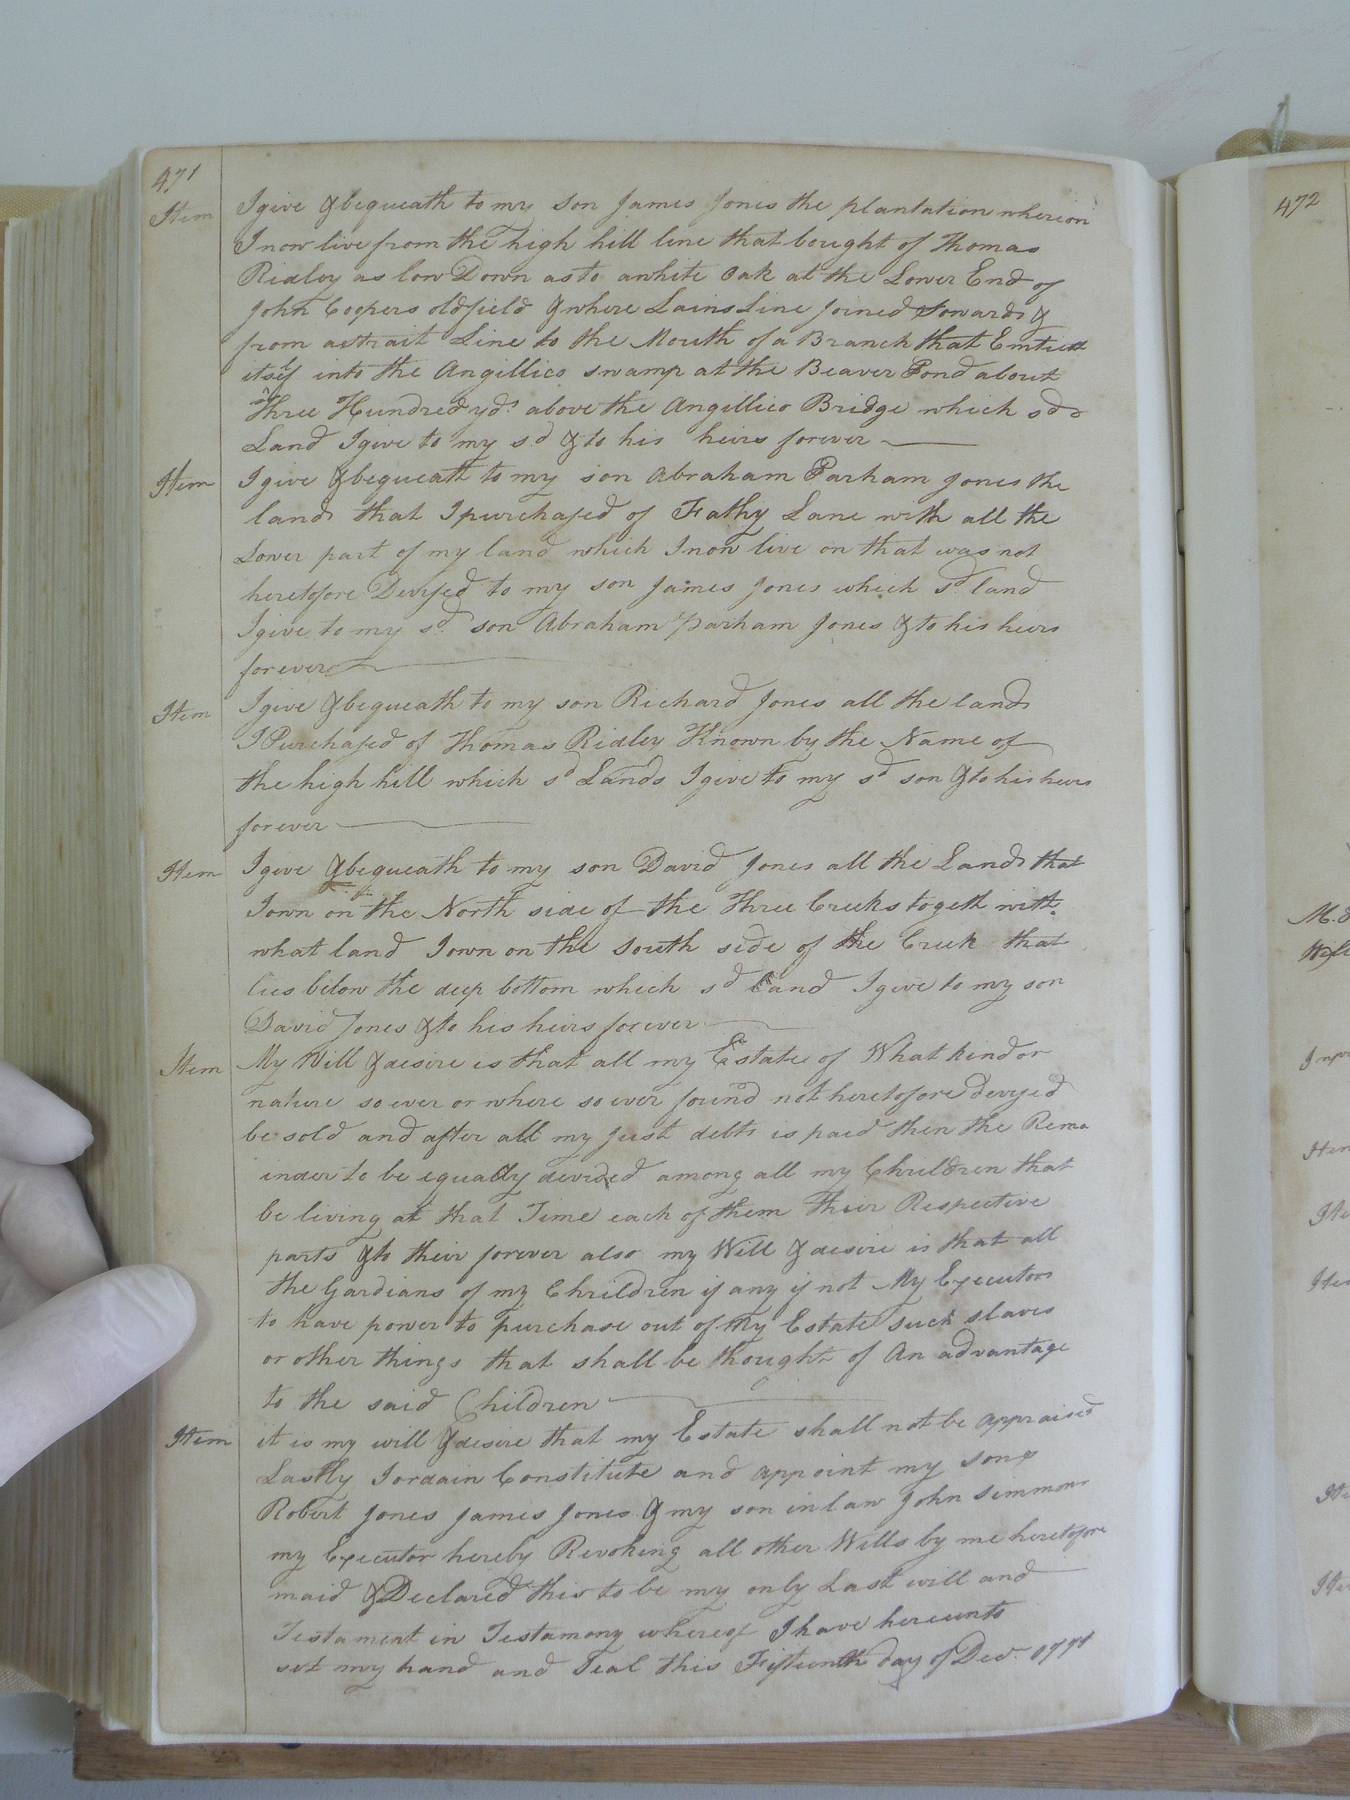 471
Item I give & bequeath to my son James Jones the plantation whereon
I now live from the high hill line that bought of Thomas
Ridley as low Down as to a white Oak at the Lower End of
John Coopers oldfield & where Lains Line joined Towards &
from a strait Line to the Mouth of a Branch that Emties
itself into the Angillico swamp at the Beaver Pond about
Three Hundred yds above the Angillico Bridge which sd
Land I give to my sd & to his heirs forever
Item I give & bequeath to my son Abraham Parham Jones the
lands that I purchased of Fathy Lane with all the
Lower part of my land which I now live on that was not
heretofore Devysed to my son James Jones which sd land
I give to my sd son Abraham Parham Jones & to his heirs
forever
Item I give & bequeath to my son Richard Jones all the lands
I Purchased of Thomas Ridley Known by the Name of
the high hill which sd Lands I give to my sd son & to his heirs
forever
Item I give & bequeath to my son David Jones all the Lands that
I own on the North side of the Three Creeks togeth with
what land I own on the South side of the Creek that
lies below the deep bottom which sd Land I give to my son
David Jones & to his heirs forever
Item My Will & desire is that all my Estate of What kind or
nature so ever or where so ever found not heretofore devysed
be sold and after all my just debts is paid then the Rema
inder to be equally devided among all my Chrildren that
be living at that Time each of them Their Respective
parts & to their forever also my Will & desire is that all
the Gardians of my Chrildren if any if not My Executors
to have power to purchase out of my Estate such slaves
or other things that shall be thought of An advantage
to the said Children
Item it is my will & desire that my Estate shall not be appraised
Lastly I ordain Constitute and appoint my sons
Robert Jones James Jones & my son in law John Simmons
my Executor hereby Revoking all other Wills by me heretofore
maid & Declared this to be my only Last will and
Testament in Testamony whereof I have hereunto
set my hand and Seal this Fifteenth day of Decr. 1791
472
Item
Item
Item
Item
Item